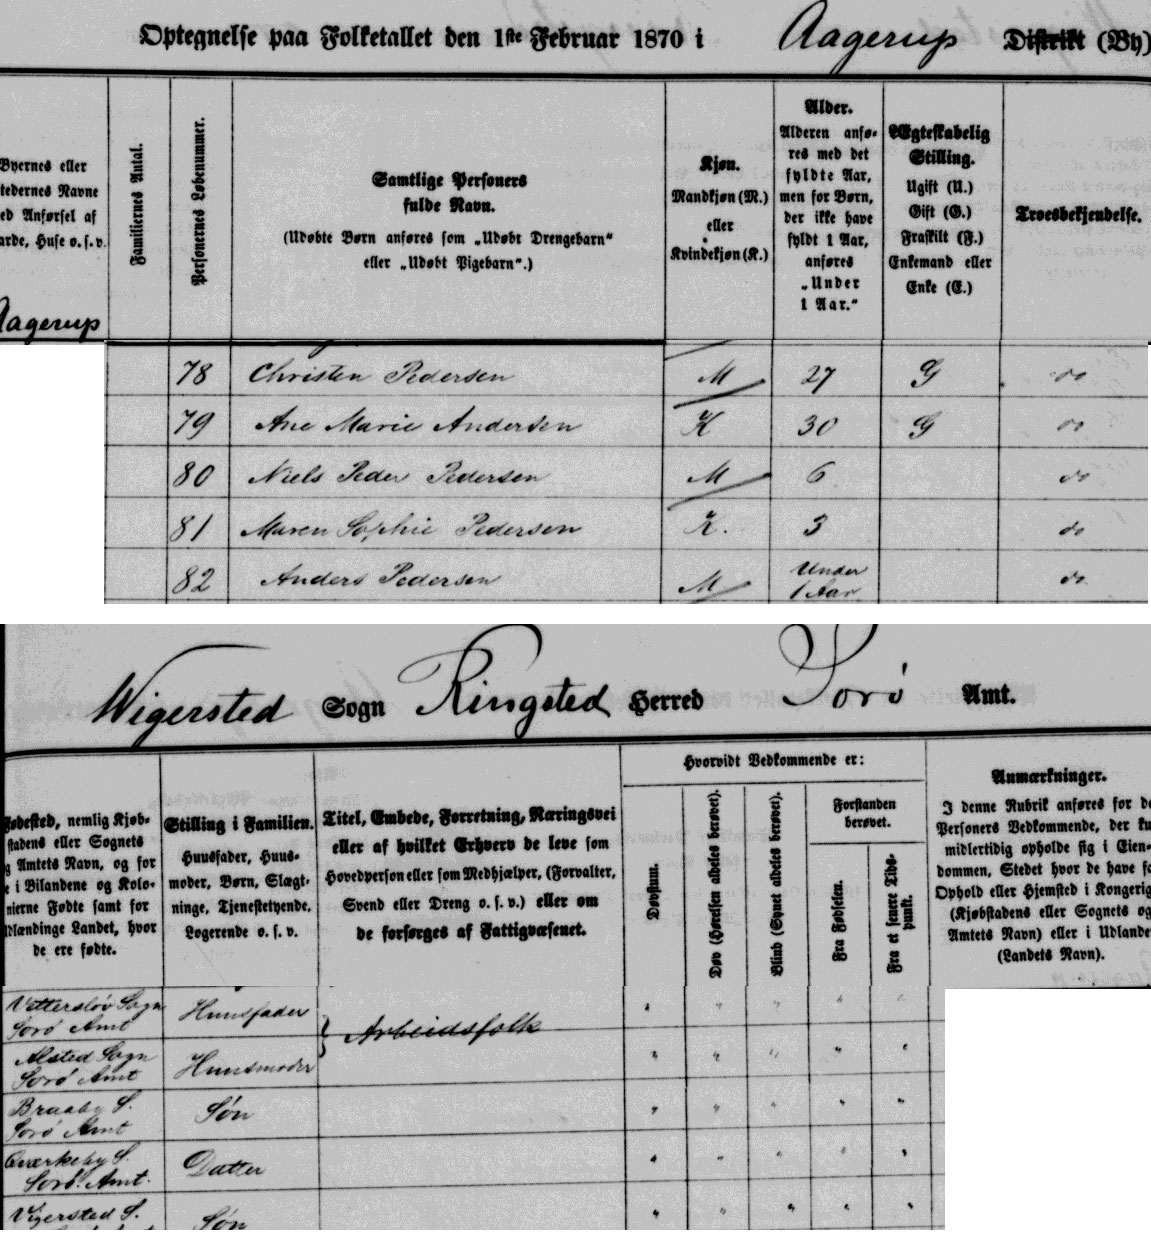 Optegnelse paa Folketallet den 1ste Februar 1870 i Aagerup Distrikt (By)
Byernes eller
tedernes Navne
ed Anførsel af
arde, Huse o.s.v.
Aagerup
Familiernes Antal.
Personernes Løbenummer.
Samtlige Personers
fulde Navn.
(Udøbte Børn anføres som „Udøbt Drengebarn“
eller „Udøbt Pigebarn“.)
Kjøn.
Mandkjøn (M.)
eller
Kvindekjøn (K.)
Alder.
Alderen anfø-
res med det
fyldte Aar,
men for Børn,
der ikke have
fyldt 1 Aar,
anføres
„Under
1 Aar.“
Ægteskabelig
Stilling.
Ugift (U.)
Gift (G.)
Fraskilt (F.)
Enkemand eller
Enke (E.)
Troesbekjendelse.
78 Christen Pedersen M 27 G do
79 Ane Marie Andersen K 30 G do
80 Niels Peder Pedersen M 6 do
81 Maren Sophie Pedersen K. 3 do
82 Anders Pedersen M Under 1 Aar do.
Wigersted Sogn Ringsted Herred Sorø Amt.
Fødested, nemlig Kjøb-
stadens eller Sognets
g Amtets Navn, og for
e i Bilandene og Kolo-
nierne Fødte samt for
dlændinge Landet, hvor
de ere fødte.
Stilling i Familien.
Huusfader, Huus-
moder, Børn, Slægt-
ninge, Tjenestetyende,
Logerende o.s.v.
Titel, Embede, Forretning, Næringsvei
eller af hvilket Erhverv de leve som
Hovedperson eller som Medhjælper, (Forvalter,
Svend eller Dreng o.s.v.) eller om
de forsørges af Fattigvæsenet.
Hvorvidt Vedkommende er:
Døvstum.
Døv (Hørelsen aldeles berøvet).
Blind (Synet aldeles berøvet).
Forstanden
berøvet.
Fra Fødselen.
Fra et senere Tids-
punkt.
Anmærkninger.
I denne Rubrik anføres for de
Personers Vedkommende, der ku
midlertidig opholde sig i Eien-
dommen, Stedet hvor de have fa
Ophold eller Hjemsted i Kongerig
(Kjøbstadens eller Sognets og
Amtets Navn) eller i Udlande
(Landets Navn).
Vetterslöv Sogn
Sorø Amt
Huusfader
Arbeidsfolk
Alsted Sogn
Sorø Amt
Huusmoder
Braaby S.
Sorø Amt
Søn
Qværkeby S.
Sorø. Amt.
Datter
Vigersted S.
Søn